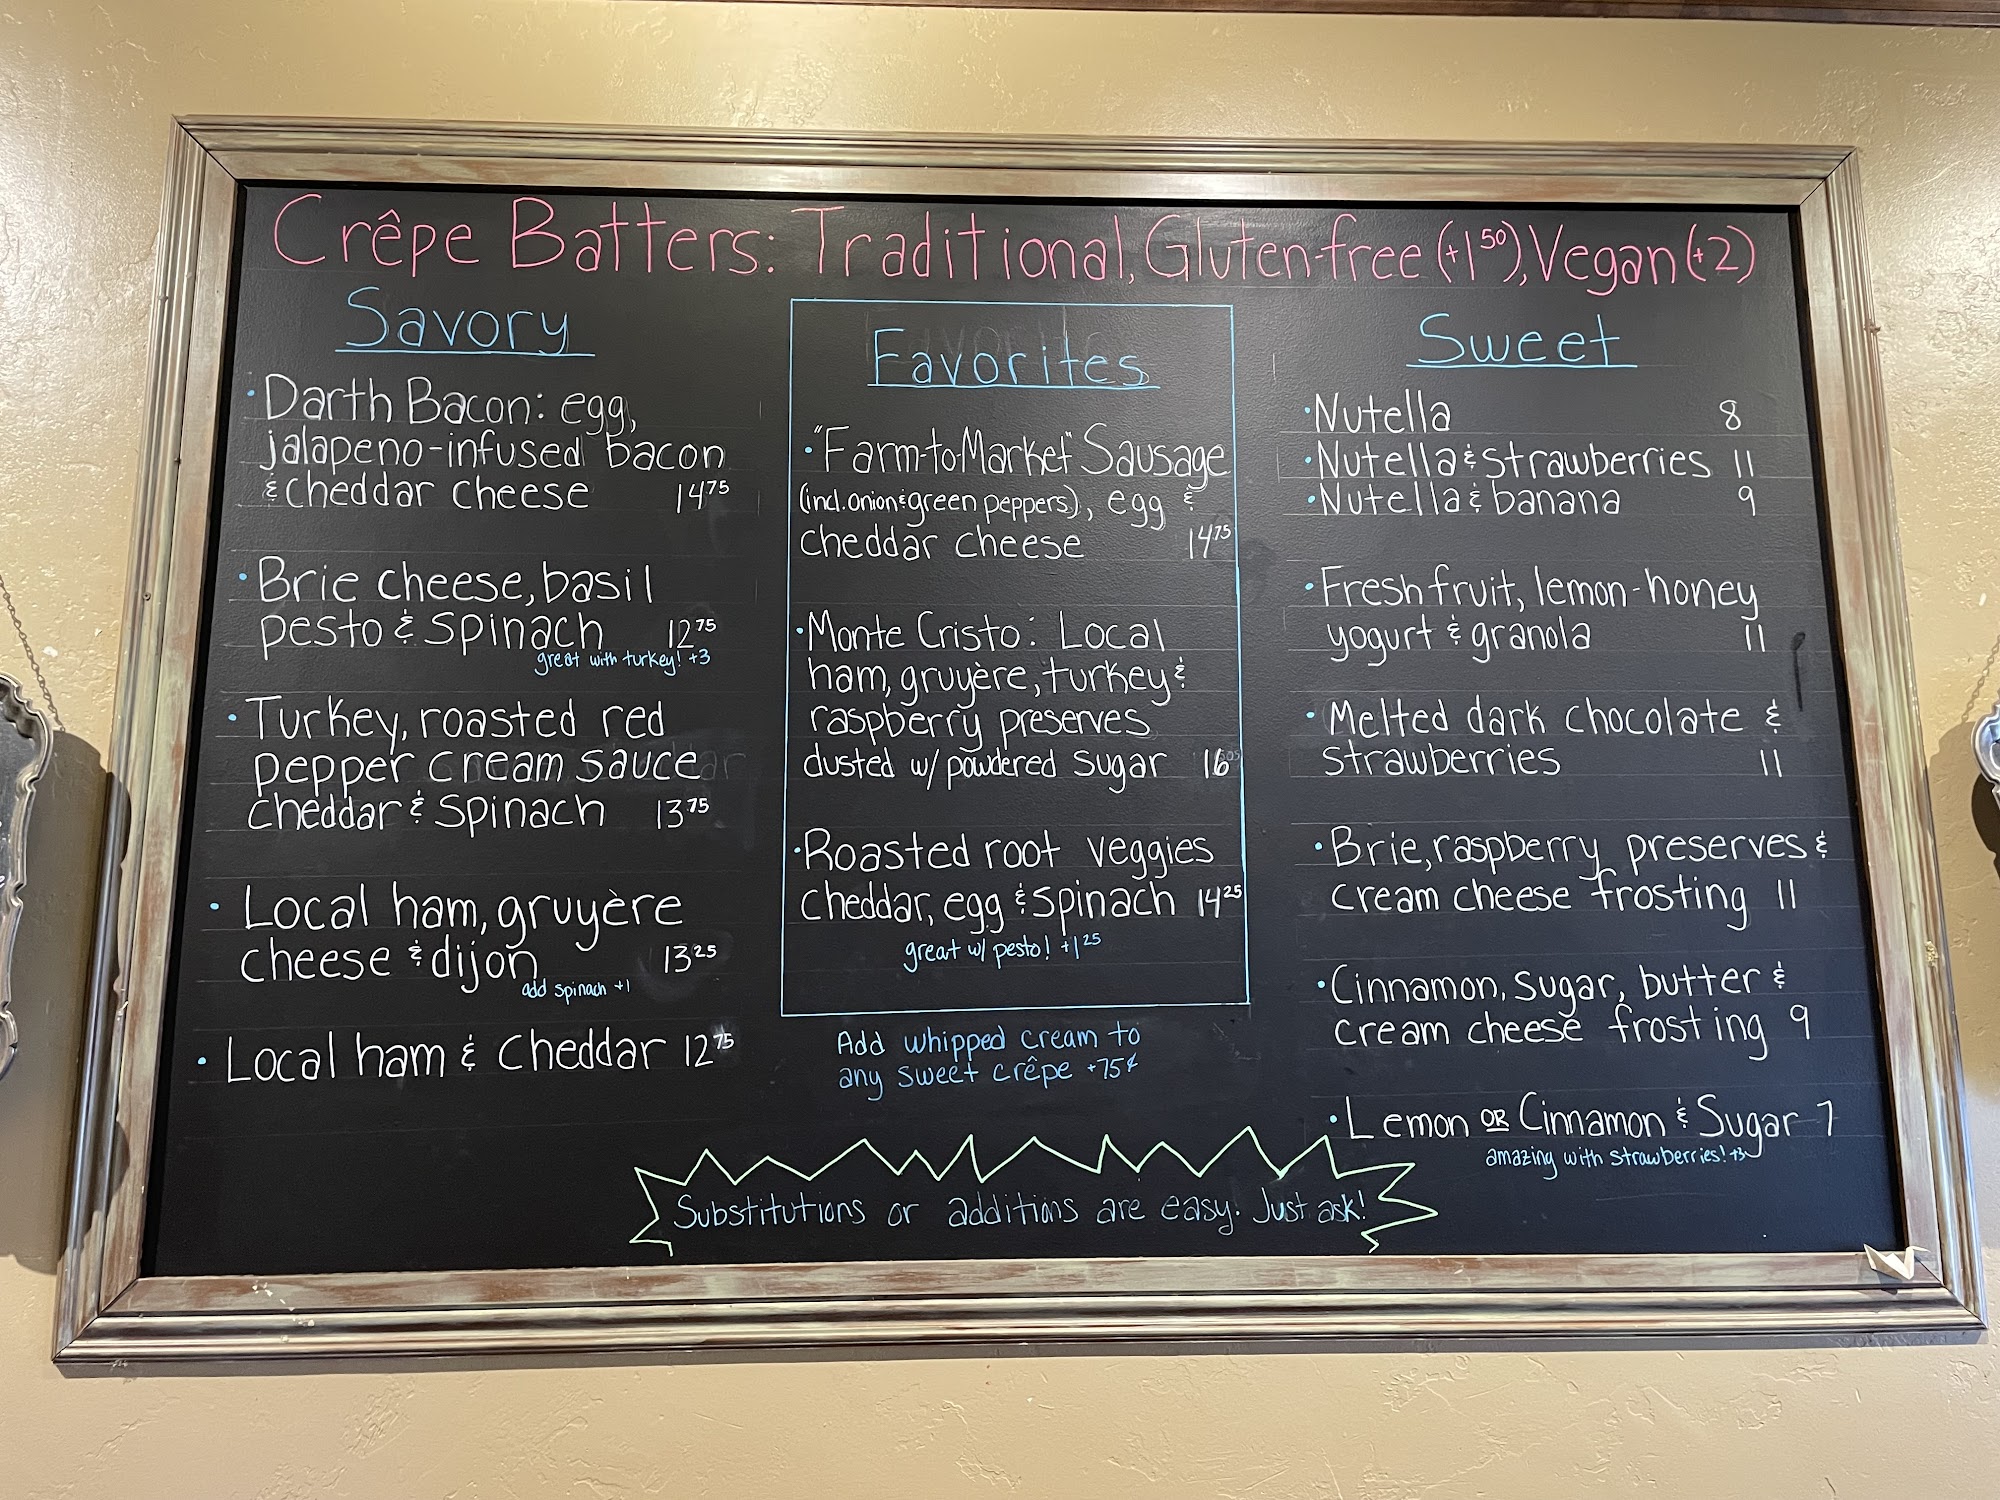 Crêpe Batters: Traditional, Gluten-free (+1⁵⁰), Vegan (+2)
Savory
• Darth Bacon: egg,
jalapeno-infused bacon
& cheddar cheese 14⁷⁵
• Brie cheese, basil
pesto & spinach 12⁷⁵
great with turkey! +3
• Turkey, roasted red
pepper cream sauce
cheddar & spinach 13⁷⁵
• Local ham, gruyère
cheese & dijon 13²⁵
add spinach +1
• Local ham & cheddar 12⁷⁵
Favorites
• "Farm-to-Market" Sausage
(incl. onion & green peppers), egg &
cheddar cheese 14⁷⁵
• Monte Cristo: Local
ham, gruyère, turkey &
raspberry preserves
dusted w/ powdered sugar 16
• Roasted root veggies
cheddar, egg & spinach 14²⁵
great w/ pesto! +1²⁵
Add whipped cream to
any sweet crêpe +75¢
Sweet
• Nutella 8
• Nutella & strawberries 11
• Nutella & banana 9
• Fresh fruit, lemon-honey
yogurt & granola 11
• Melted dark chocolate &
strawberries 11
• Brie, raspberry preserves &
cream cheese frosting 11
• Cinnamon, sugar, butter &
cream cheese frosting 9
• Lemon OR Cinnamon & Sugar 7
amazing with strawberries! +3
Substitutions or additions are easy. Just ask!